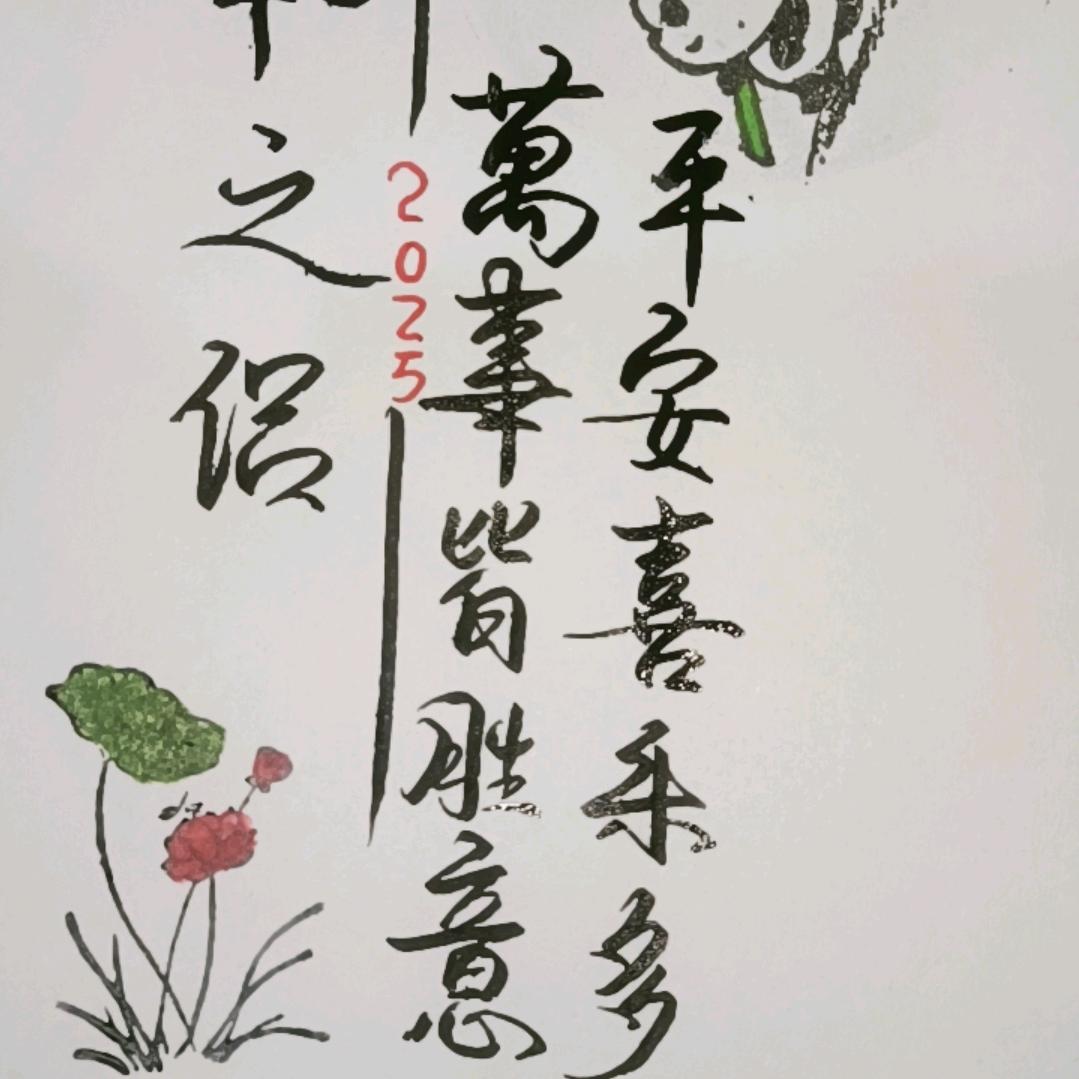 平安喜乐多
萬事皆胜意
2025
之侣